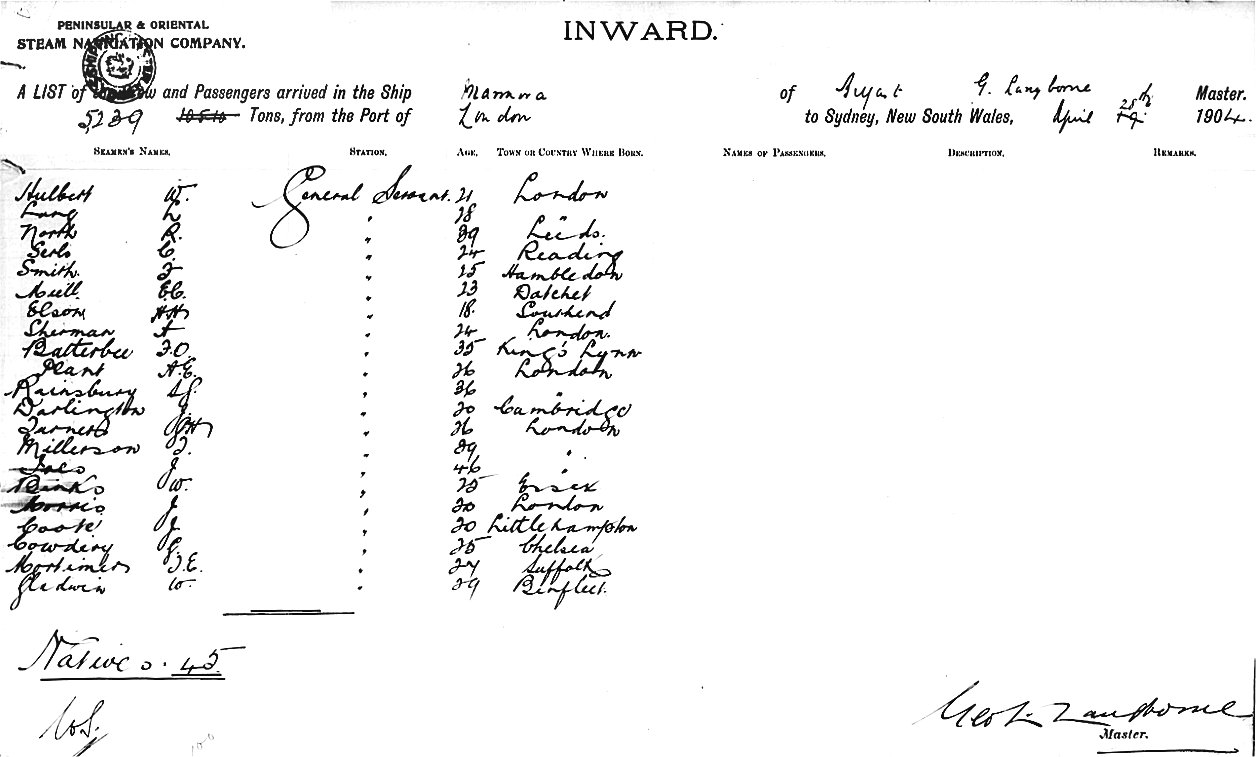 PENINSULAR & ORIENTAL
STEAM NAVIGATION COMPANY.
INWARD.
A LIST of Crew and Passengers arrived in the Ship Marmora of G. Langborne Master.
5239 10510 Tons, from the Port of London to Sydney, New South Wales, April 28th 19 1904.
SEAMEN'S NAMES. STATION. AGE. TOWN OR COUNTRY WHERE BORN. NAMES OF PASSENGERS. DESCRIPTION. REMARKS.
Hulbert W. General Servant. 21 London
Lang L " 28
North R. " 39 Leeds.
C. " 24 Reading
Smith. F " 25 Hambledon
E.C. " 23 Datchet
Elson HH " 18. Southend
Sherman A " 24 London.
Batterbee F.O. " 35 King's Lynn
Plant A.E. " 26 London
Rainsbury " 36 "
Darlington J. " 20 Cambridge
" 26 London
Millerson F. " 39 "
J " 46 "
Binks W. " 25 Essex
Morris J " 20 London
Cook J. " 20 Littlehampton
Cowdiry G. " 25 Chelsea
Mortimer F.E. " 27 Suffolk
Gladwin W. " 29 Benfleet.
Natives. 45.
Geo. L. Langborne
Master.